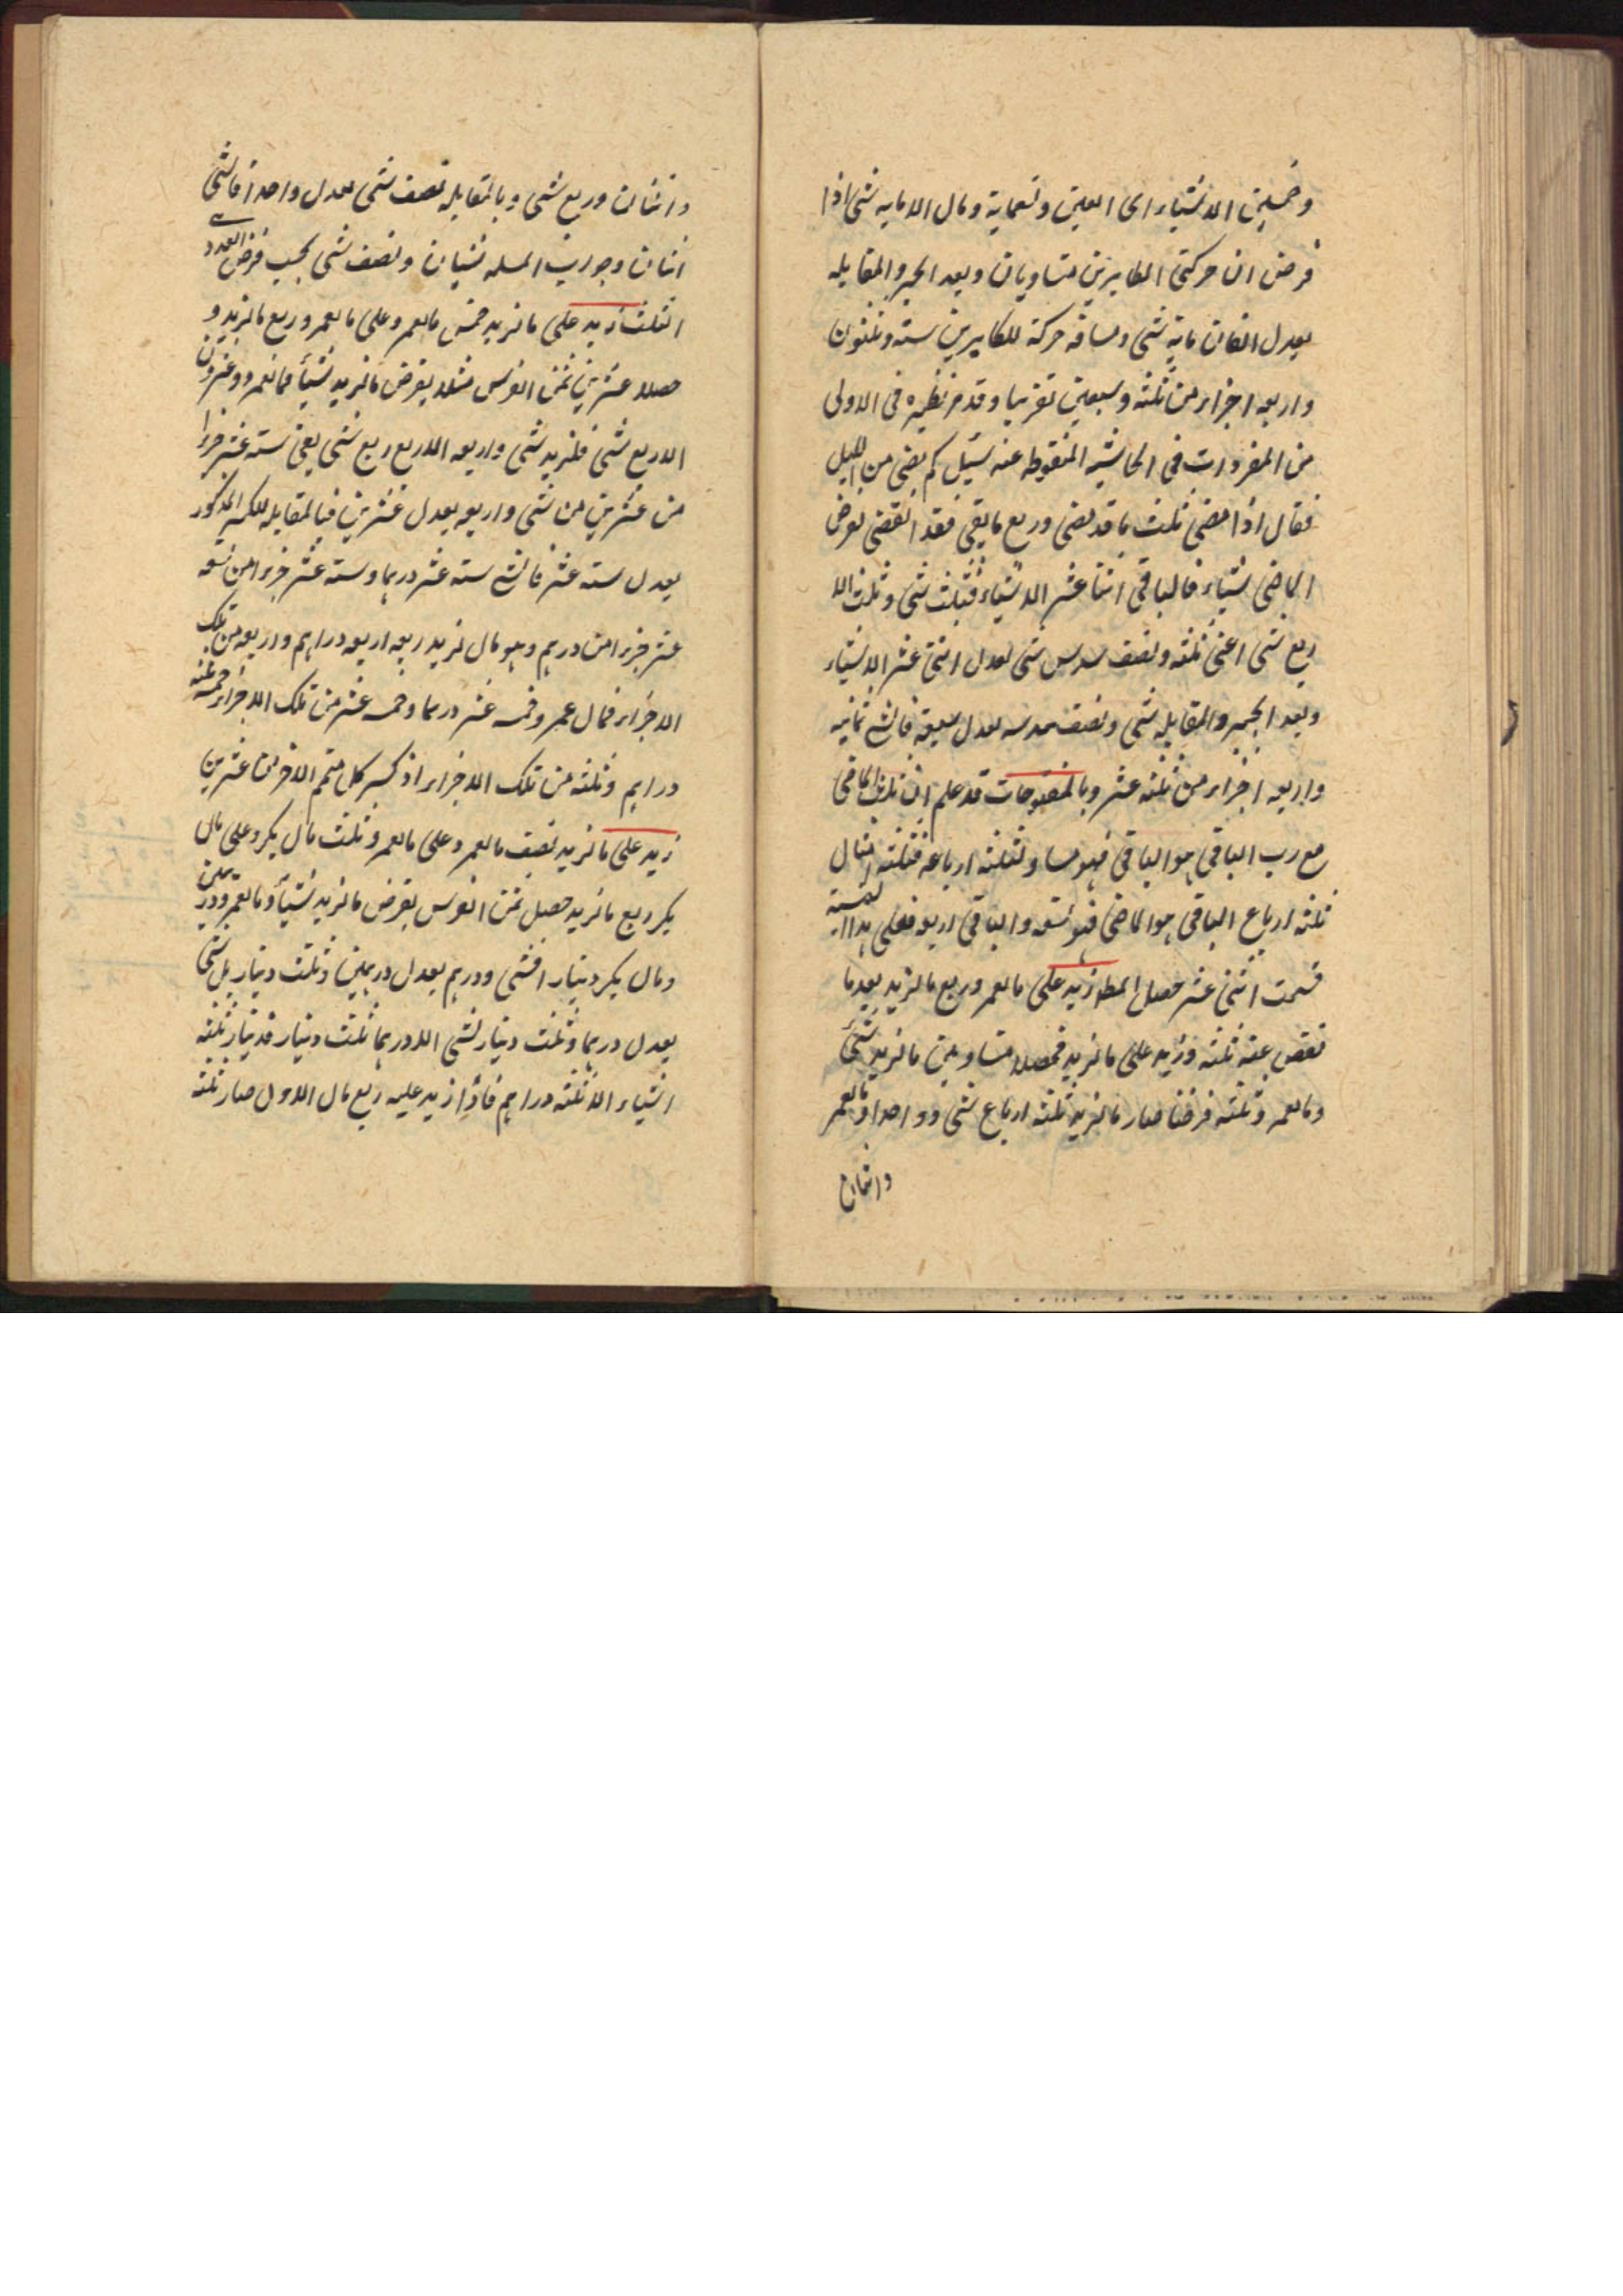 وخمسين الا شيئاء اى الفين وتسعماية ومال الا مايه شئ اذا
فرض ان حركتى الطايرين متساويان وبعد الجبر والمقابله
يعدل الفان ماية شئ ومسافة حركة للطايرين ستة وثلثون
واربعه اجزاء من ثلثة وسبعين تقريبا وقد مر نظيره فى الاولى
من المفردات فى الحاشيه المنقوطه عنه سئيل كم مضى من الليل
فقال اذا مضى ثلث ما قد مضى وربع ما بقى فقد انقضى نفرض
الماضى شيئاء فالباقى اثنا عشر الا شيئاء فثلث شئ وثلث الا
ربع شئ اعنى ثلثه ونصف سدس شئ يعدل اثنى عشر الا شيئاء
وبعد الجبر والمقابله شئ ونصف سدسه يعدل سبعة فالشئ ثمانيه
واربعه اجزاء من ثلثه عشر وبالمفتوحات قد علم ان ثلث الماضى
مع ربع الباقى هو الباقى فهو مساو لثلثة ارباعه فثلثه امثال
ثلثه ارباع الباقى هو الماضى فهو تسعه والباقى اربعه فعلى هذا النسبة
قسمت اثنى عشر حصل المط زيد على ما لعمرو ربع ما لزيد بعد ما
نقص عنه ثلثه وزيد على ما لزيد فحصلا متساويين ما لزيد شئ
وما لعمرو ثلثه فرضنا صار ما لزيد ثلثه ارباع شئ وواحدا وما لعمرو
واثنان
واثنان وربع شئ وبالمقابله نصف شئ يعدل واحدا فالشئ
اثنان وجواب المسله شيئان ونصف شئ بحسب فرض العدد
الثلث زيد على ما لزيد خمس ما لعمرو وعلى ما لعمرو ربع ما لزيد و
حصلا عشرين ثمن الفرس مثلا يفرض ما لزيد شيئا فما لعمرو وعشرون
الا ربع شئ فلزيد شئ واربعه الا ربع ربع شئ يعنى ستة عشر جزءا
من عشرين من شئ واربعه يعدل عشرين فبالمقابله للكسر المذكور
يعدل ستة عشر فالشئ ستة عشر درهما وستة عشر جزءا من تسعه
عشر جزءا من درهم وهو مال لزيد ربعه اربعه دراهم واربعه من تلك
الاجزاء فمال عمرو خمسه عشر درهما وخمسه عشر من تلك الاجزاء خمسه ثلثه
دراهم وثلثه من تلك الاجزاء اذ كسر كل متمم الاخر من عشرين
زيد على ما لزيد نصف ما لعمرو وعلى ما لعمرو ثلث مال بكر وعلى مال
بكر ربع ما لزيد حصل ثمن الفرس يفرض ما لزيد شيئا وما لعمرو درهمين
ومال بكر دينارا فشئ ودرهم يعدل درهمين وثلث دينار بل شئ
يعدل درهما وثلث دينار لشئ الا درهما ثلث دينار فدينار ثلثه
اشياء الا ثلثه دراهم فاذا زيد عليه ربع مال الاول صار ثلثه